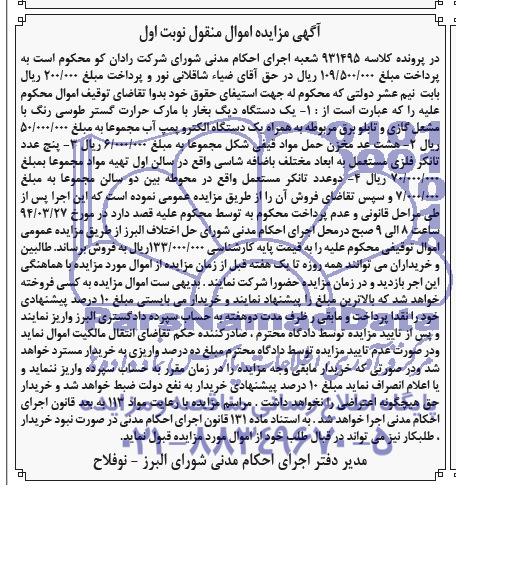 آگهی مزایده اموال منقول نوبت اول
در پرونده کلاسه ۹۳۱۴۹۵ شعبه اجرای احکام مدنی شورای شرکت رادان کو محکوم است به
پرداخت مبلغ ۱۰۹/۵۰۰/۰۰۰ ریال در حق آقای ضیاء شاقلانی نور و پرداخت مبلغ ۲۰۰/۰۰۰ ریال
بابت نیم عشر دولتی که محکوم له جهت استیفای حقوق خود بدوا تقاضای توقیف اموال محکوم
علیه را که عبارت است از : ۱- یک دستگاه دیگ بخار با مارک حرارت گستر طوسی رنگ با
مشعل گازی و تابلو برق مربوطه به همراه یک دستگاه الکترو پمپ آب مجموعا به مبلغ ۵۰/۰۰۰/۰۰۰
ریال ۲- هشت عد مخزن حمل مواد قیفی شکل مجموعا به مبلغ ۶/۰۰۰/۰۰۰ ریال ۳- پنج عدد
تانکر فلزی مستعمل به ابعاد مختلف باضافه شاسی واقع در سالن اول تهیه مواد مجموعا بمبلغ
۷۰/۰۰۰/۰۰۰ ریال ۴- دوعدد تانکر مستعمل واقع در محوطه بین دو سالن مجموعا به مبلغ
۷/۰۰۰/۰۰۰ و سپس تقاضای فروش آن را از طریق مزایده عمومی نموده است که این اجرا پس از
طی مراحل قانونی و عدم پرداخت محکوم به توسط محکوم علیه قصد دارد در مورخ ۹۴/۰۳/۲۷
ساعت ۸ الی ۹ صبح درمحل اجرای احکام مدنی شورای حل اختلاف البرز از طریق مزایده عمومی
اموال توقیفی محکوم علیه را به قیمت پایه کارشناسی ۱۳۳/۰۰۰/۰۰۰ریال به فروش برساند. طالبین
و خریداران می توانند همه روزه تا یک هفته قبل از زمان مزایده از اموال مورد مزایده با هماهنگی
این اجر بازدید و در زمان مزایده حضورا شرکت نمایند . بدیهی ست اموال مزایده به کسی فروخته
خواهد شد که بالاترین مبلغ را پیشنهاد نمایند و خریدار می بایستی مبلغ ۱۰ درصد پیشنهادی
خود را نقدا پرداخت و مابقی را ظرف مدت دوهفته به حساب سپرده دادگستری البرز واریز نمایند
و پس از تایید مزایده توسط دادگاه محترم ، صادرکننده حکم تقاضای انتقال مالکیت اموال نماید
ودر صورت عدم تایید مزایده توسط دادگاه محترم مبلغ ده درصد واریزی به خریدار مسترد خواهد
شد ودر صورتی که خریدار مابقی وجه مزایده را در زمان مقرر به حساب سپرده واریز ننماید و
یا اعلام انصراف نماید مبلغ ۱۰ درصد پیشنهادی خریدار به نفع دولت ضبط خواهد شد و خریدار
حق هیچگونه اعتراضی را نخواهد داشت . مراسم مزایده با رعایت مواد ۱۱۳ به بعد قانون اجرای
احکام مدنی اجرا خواهد شد . به استناد ماده ۱۳۱ قانون اجرای احکام مدنی در صورت نبود خریدار
، طلبکار نیز می تواند در قبال طلب خود از اموال مورد مزایده قبول نماید.
مدیر دفتر اجرای احکام مدنی شورای البرز - نوفلاح
ParsNamadData
پایگاه اطلاع رسانی مناقصه و مزایده
۰۲۱-۸۸۳۴۹۶۷۰-۵